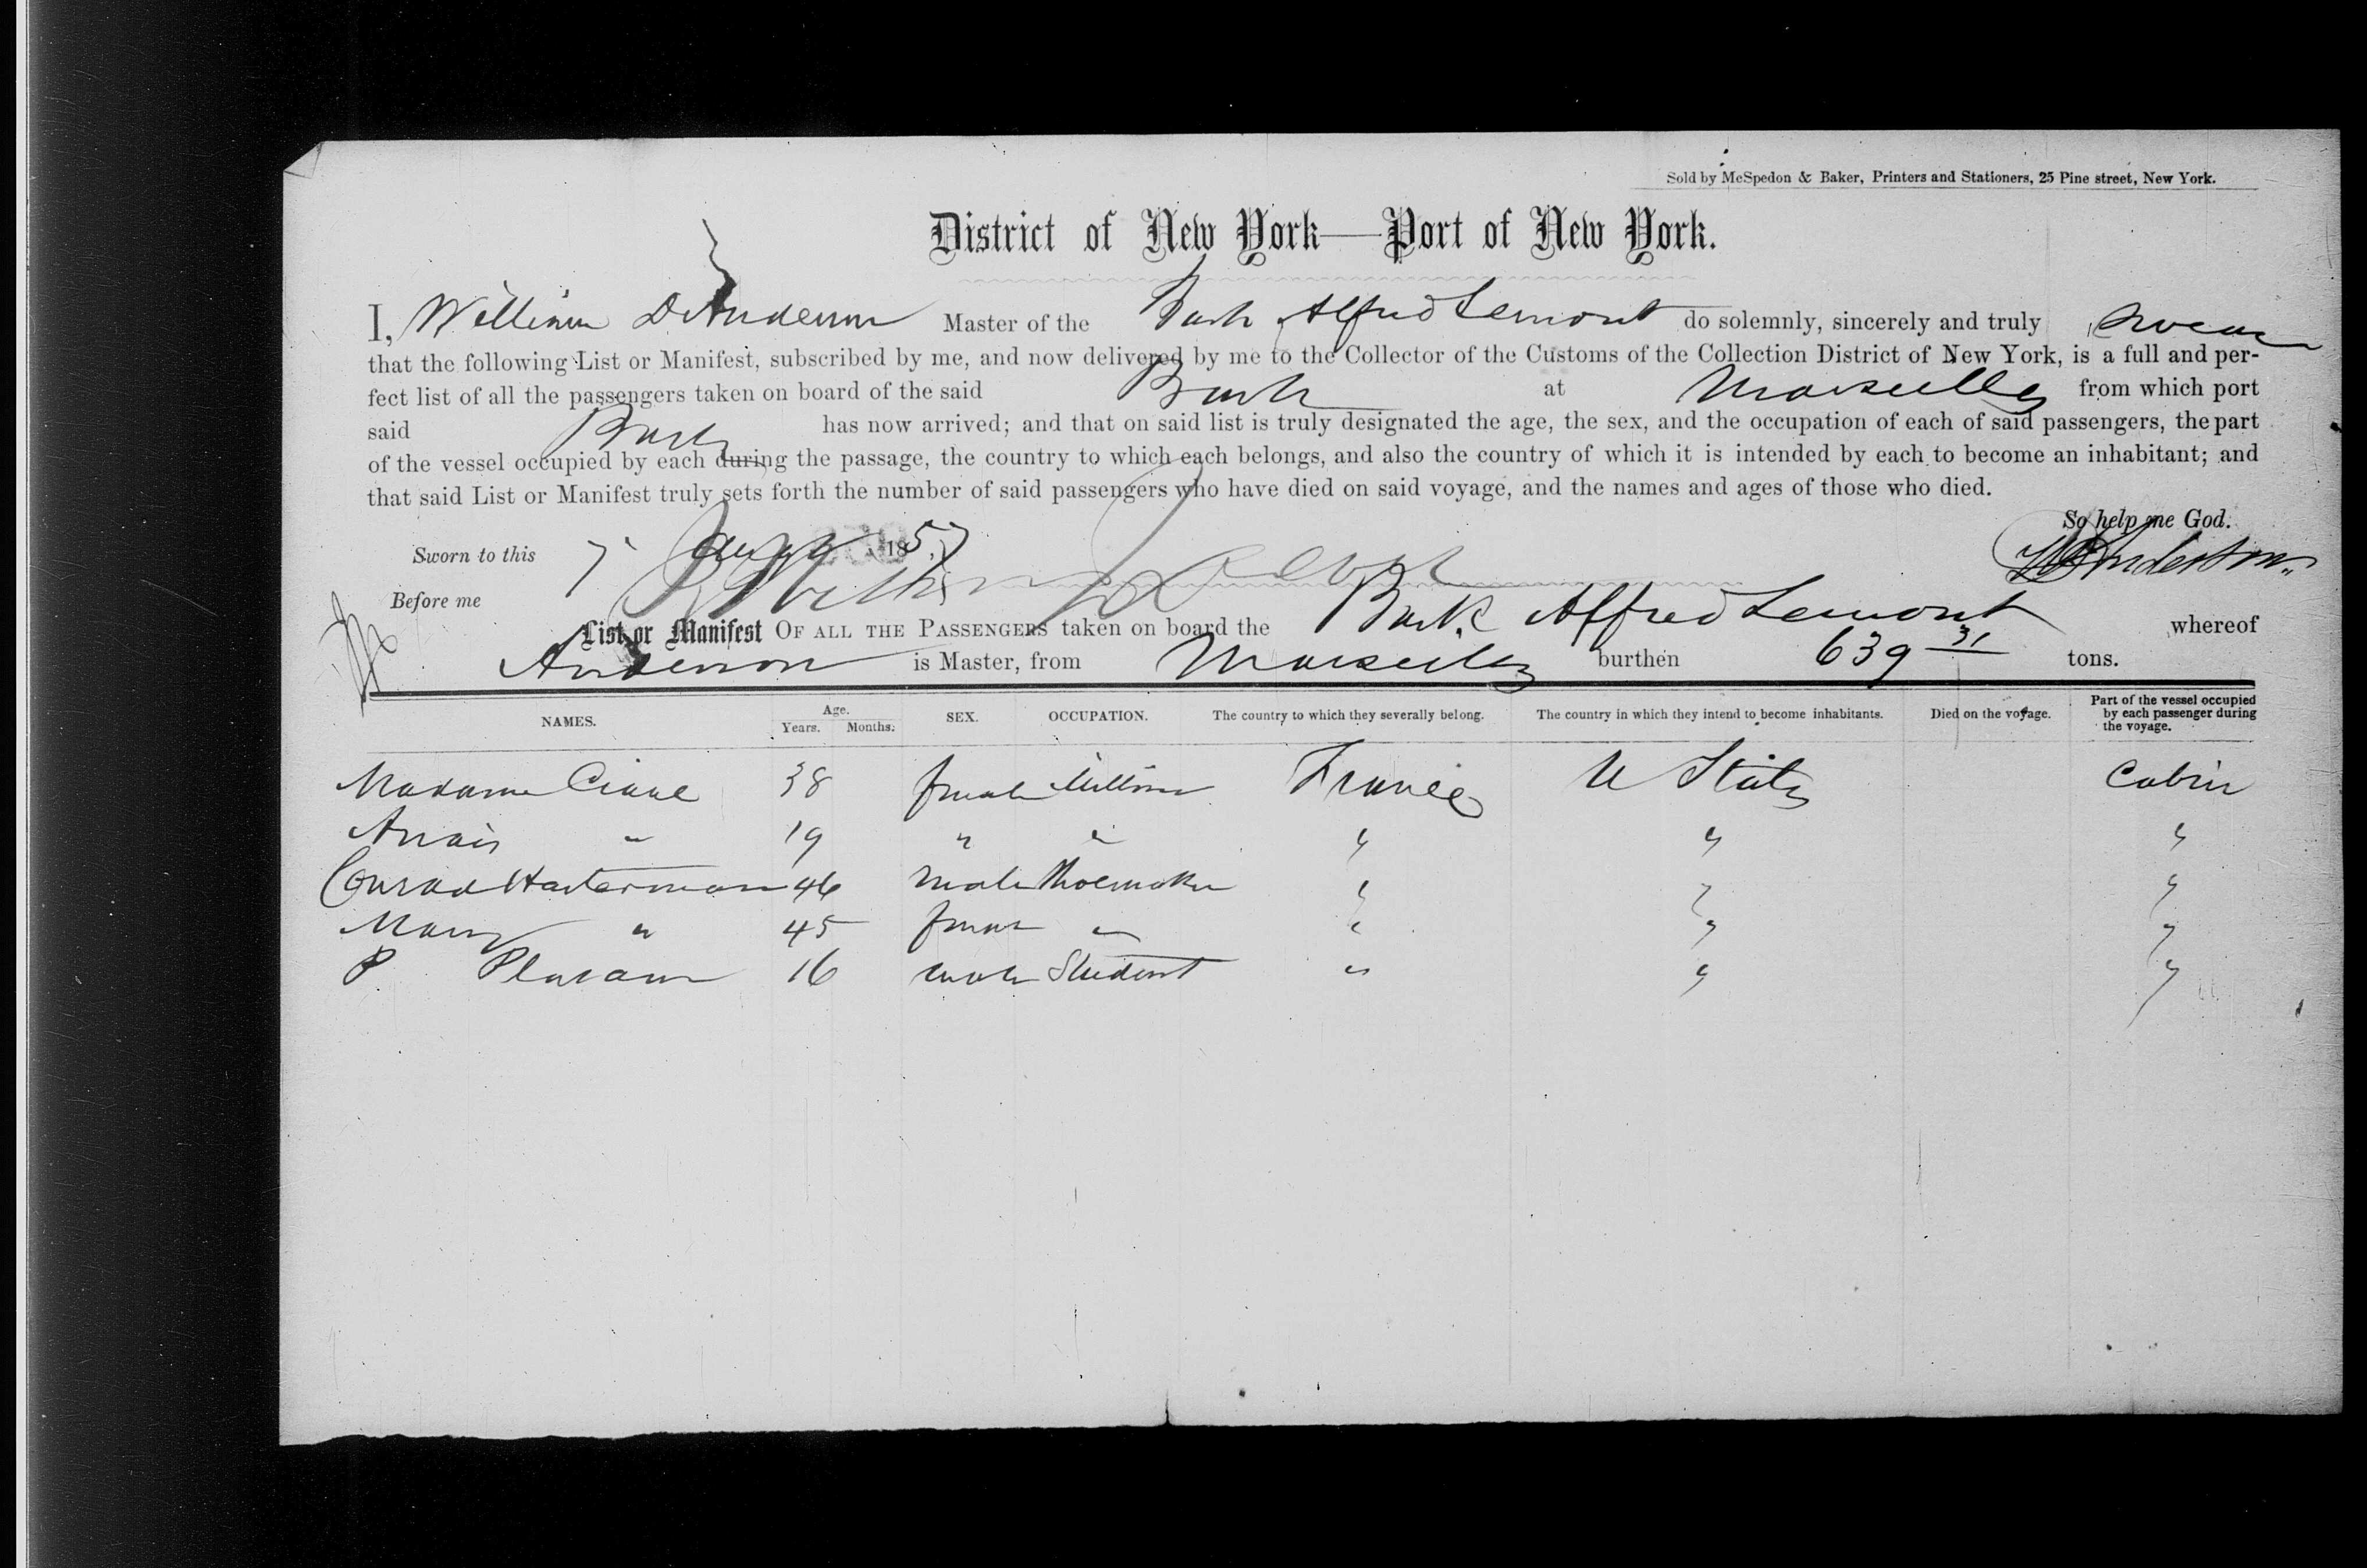 Sold by McSpedon & Baker, Printers and Stationers, 25 Pine street, New York.
District of New York—Port of New York.
I, William D Anderson Master of the Bark Alfred Lemont do solemnly, sincerely and truly swear
that the following List or Manifest, subscribed by me, and now delivered by me to the Collector of the Customs of the Collection District of New York, is a full and per-
fect list of all the passengers taken on board of the said Bark at Marseilles from which port
said Bark has now arrived; and that on said list is truly designated the age, the sex, and the occupation of each of said passengers, the part
of the vessel occupied by each during the passage, the country to which each belongs, and also the country of which it is intended by each to become an inhabitant; and
that said List or Manifest truly sets forth the number of said passengers who have died on said voyage, and the names and ages of those who died.
So help me God.
Sworn to this 7 1857 W D Anderson
Before me
List or Manifest OF ALL THE PASSENGERS taken on board the Bark Alfred Lemont whereof
Anderson is Master, from Marseilles burthen 639 31 tons.
NAMES. Age. Years. Months. SEX. OCCUPATION. The country to which they severally belong. The country in which they intend to become inhabitants. Died on the voyage. Part of the vessel occupied by each passenger during the voyage.
Madame 38 female Milliner France U States Cabin
Anais " 19 " " " " "
Conrad Hasterman 46 male Shoemaker " " "
Mary " 45 female " " " "
P 16 male Student " " "